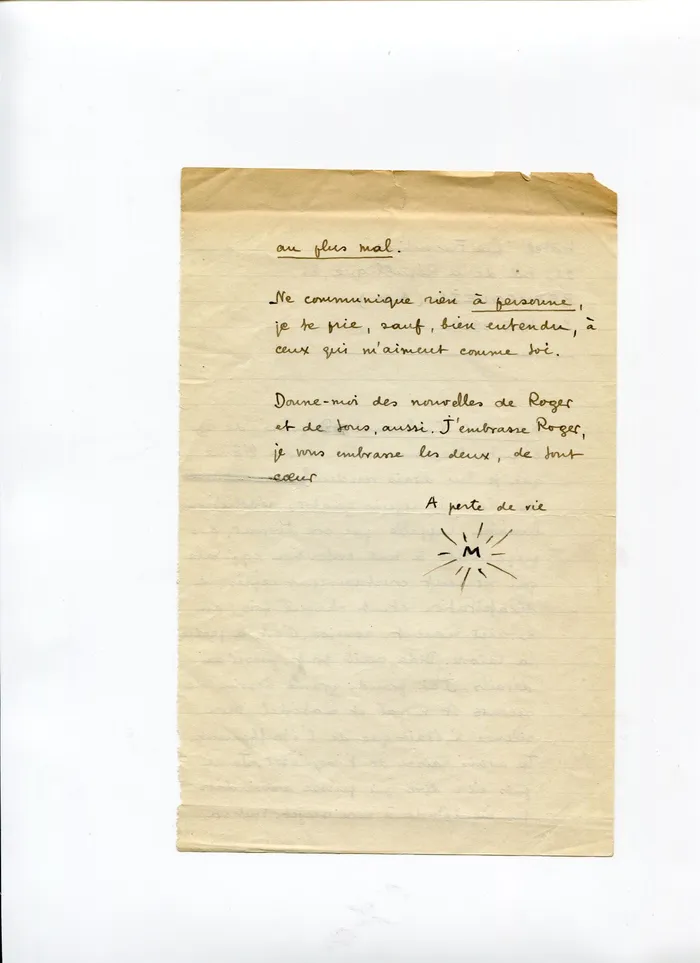 au plus mal.
Ne communique rien à personne,
je te prie, sauf, bien entendu, à
ceux qui m'aiment comme toi.
Donne-moi des nouvelles de Roger
et de tous, aussi. J'embrasse Roger,
je vous embrasse les deux, de tout
cœur
A perte de vie
M